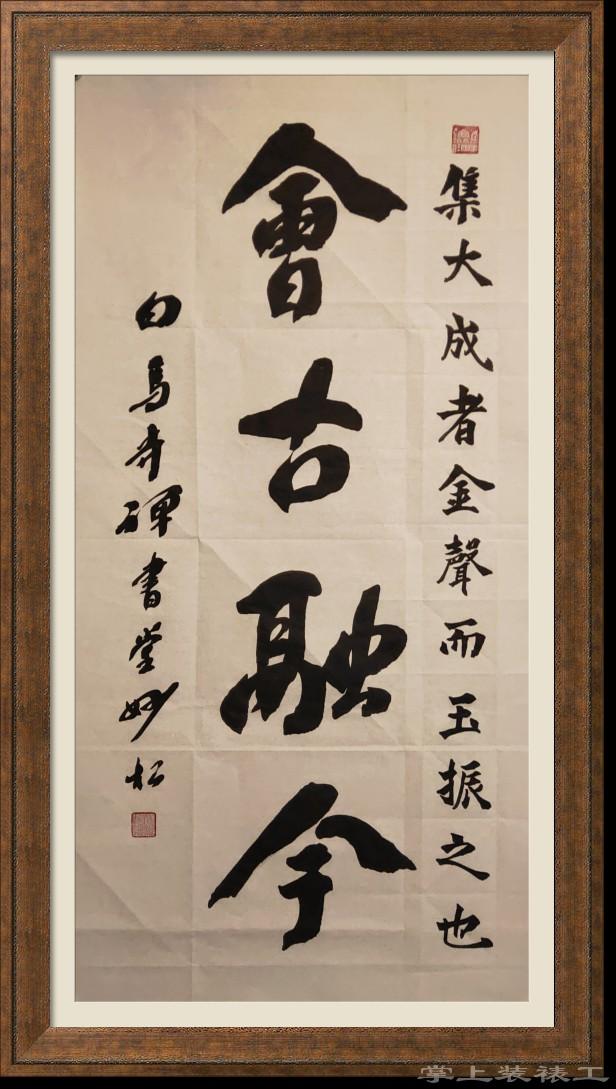 集大成者金聲而玉振之也
會古融今
白馬寺禪書堂妙松
掌上装裱工